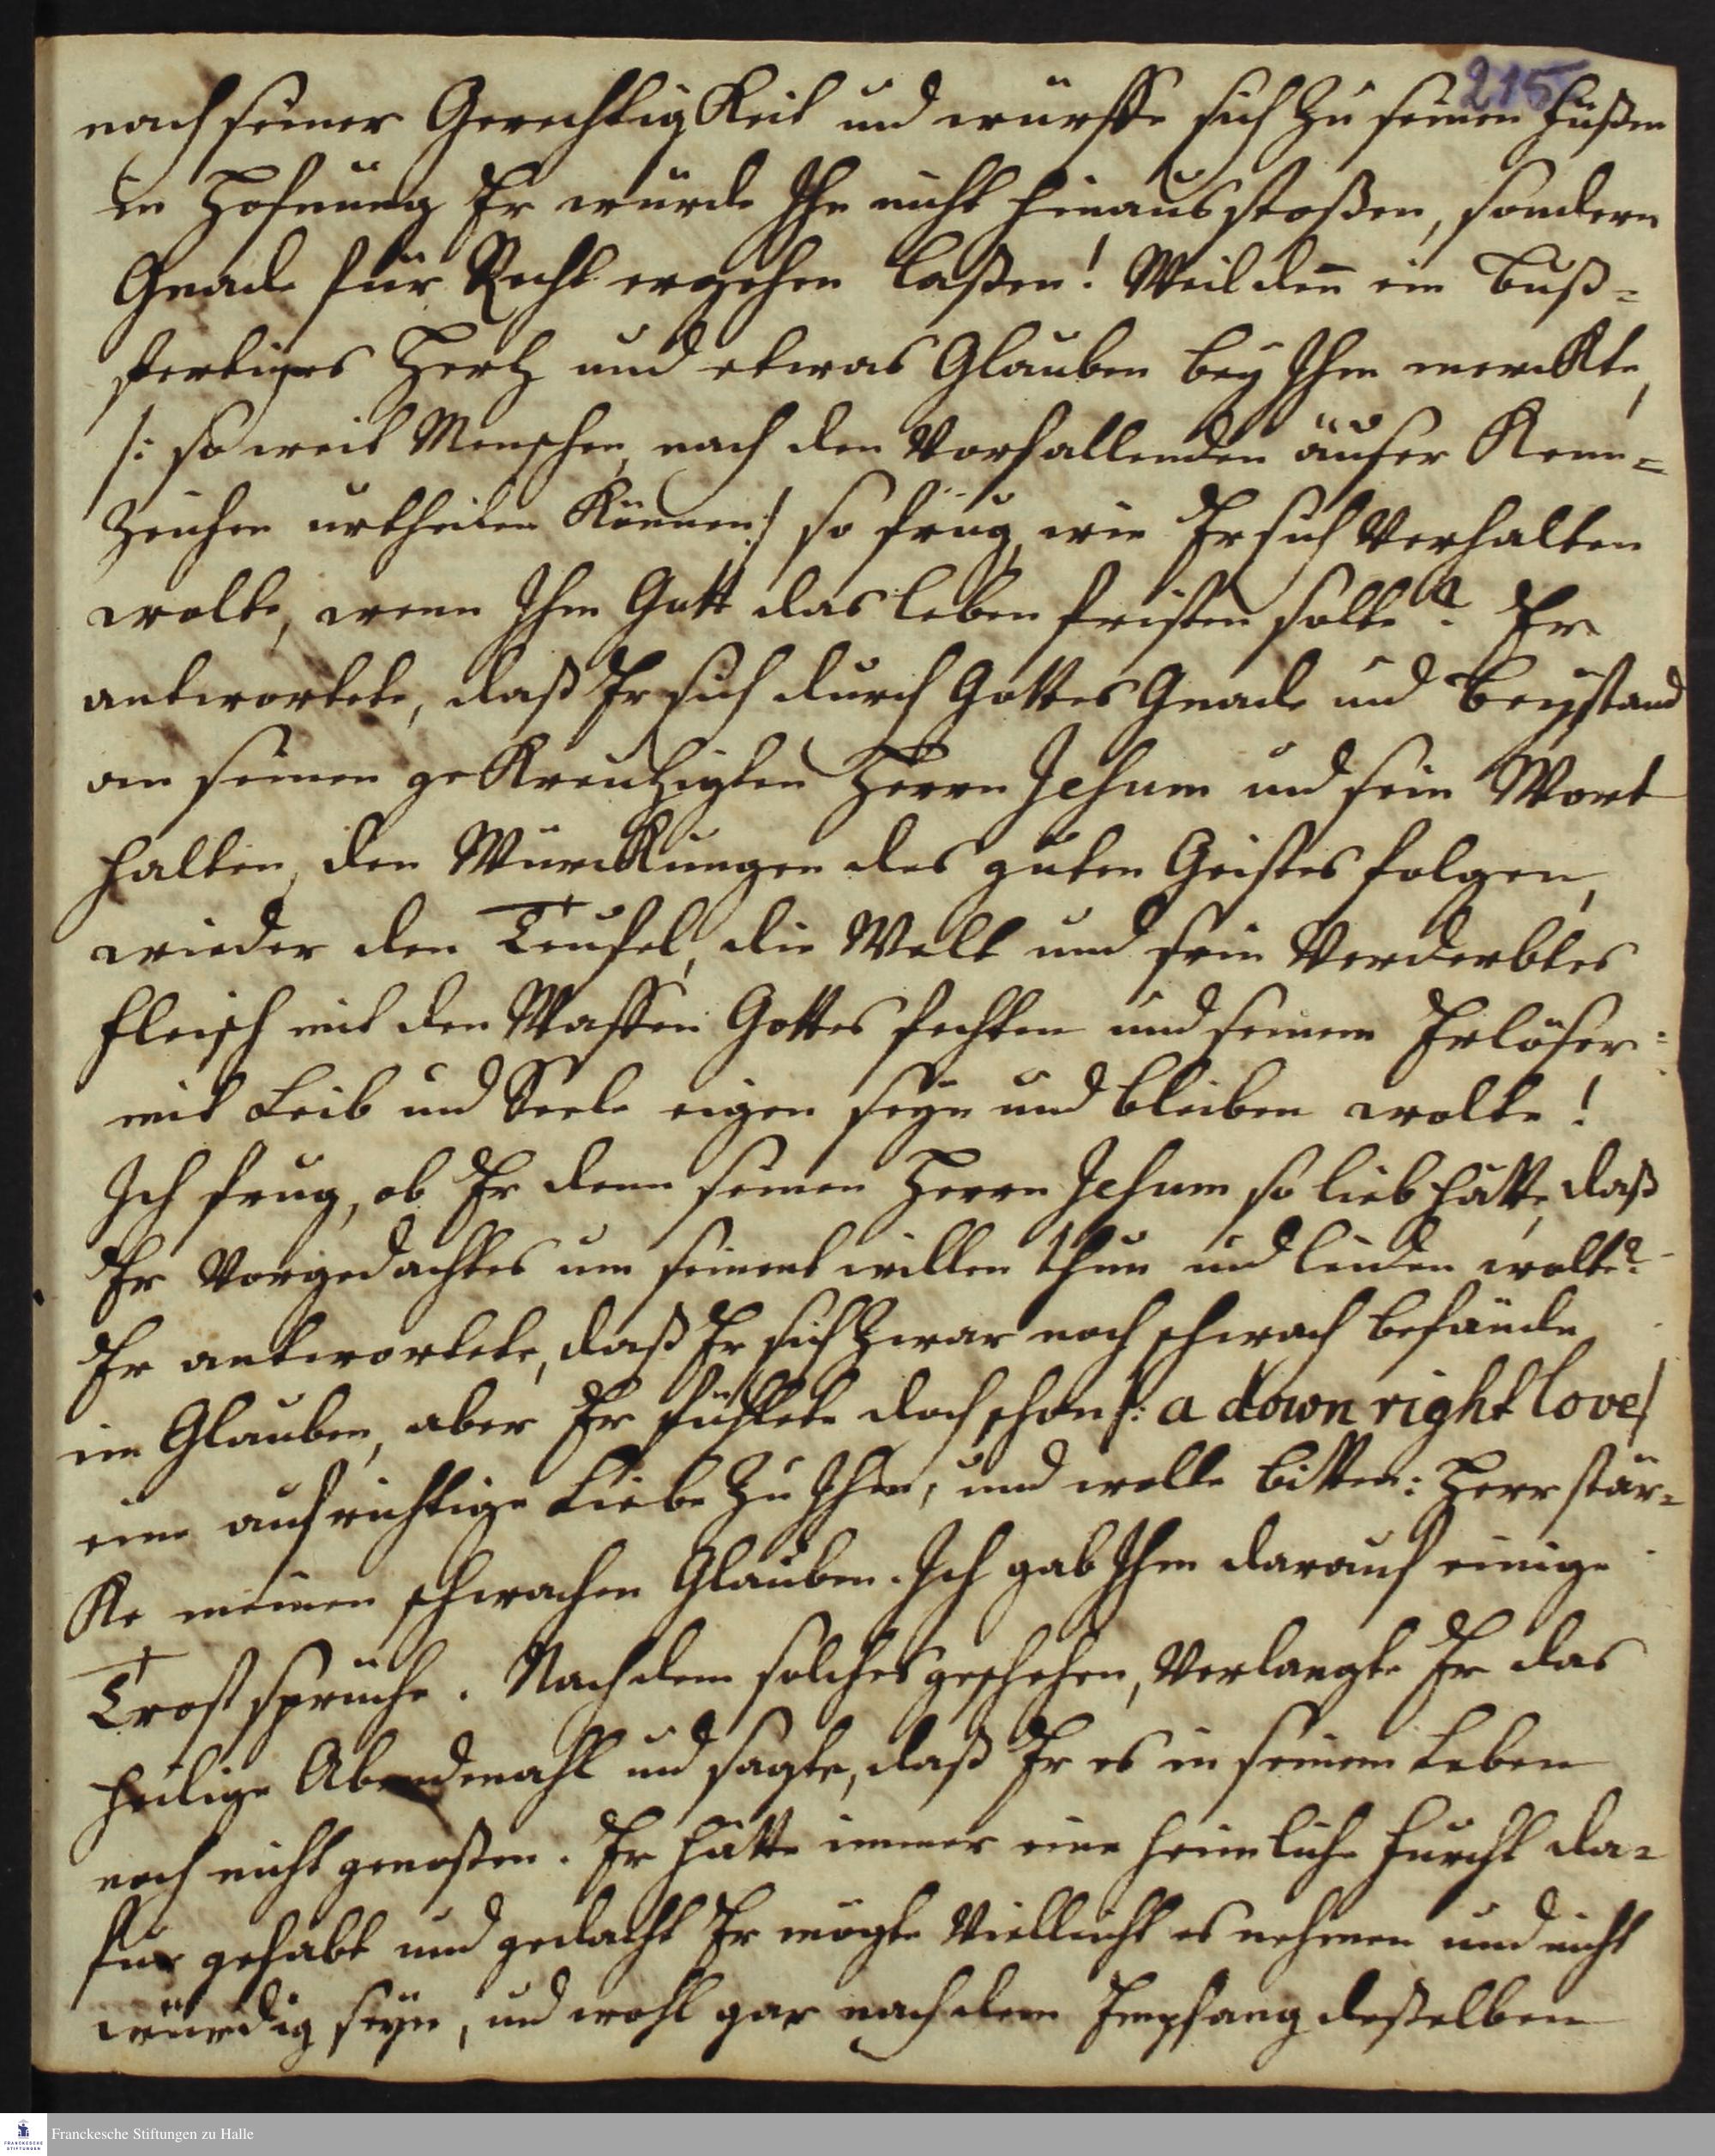 215
nach seiner Gerechtigkeit und würffe sich zu seinen Füßen
in Hofnung Er würde Ihn nicht hinausstoßen, sondern
Gnade für Recht ergehen laßen! Weil den̅ ein buß=
fertiges Hertz und etwas Glauben bey Ihm merckte,
/: so weit Menschen, nach den Vorfallenden äuser Kenn=
Zeichen urtheilen Können:/ so frug, wie Er sich Verhalten
wolte, wenn Ihm Gott das leben fristen solte? Er
antwortete, daß Er sich durch Gottes Gnade und beystand
an seinen gekreutzigten Herrn Jesum und sein Wort
halten, den Würckungen des guten Geistes folgen,
wieder den Teufel, die Welt und sein Verderbtes
fleisch mit den Waffen Gottes fechten und seinem Erlöser
mit Leib und Seele eigen seyn und bleiben wolte!
Ich frug, ob Er denn seinen Herrn Jesum so lieb hätte, daß
Er Vorgedachtes um seinent willen thun und leiden wolte?
Er antwortete, daß Er sich zwar noch schwach befände
im Glauben, aber Er fühlete doch schon /: a down right love/
eine aufrichtige Liebe zu Ihm, und wolle bitten: Herr stär=
Ke meinen schwachen Glauben. Ich gab Ihm darauf einige
Trost sprüche. Nachdem solches geschehen, Verlangte Er das
heilige Abendmahl und sagte, daß Er es in seinem Leben
noch nicht genoßen. Er hätte immer eine heimliche furcht da=
für gehabt und gedacht Er mögte Vielleicht es nehmen und nicht
würdig seyn, und wohl gar nach dem Empfang deßelben
Franckesche Stiftungen zu Halle